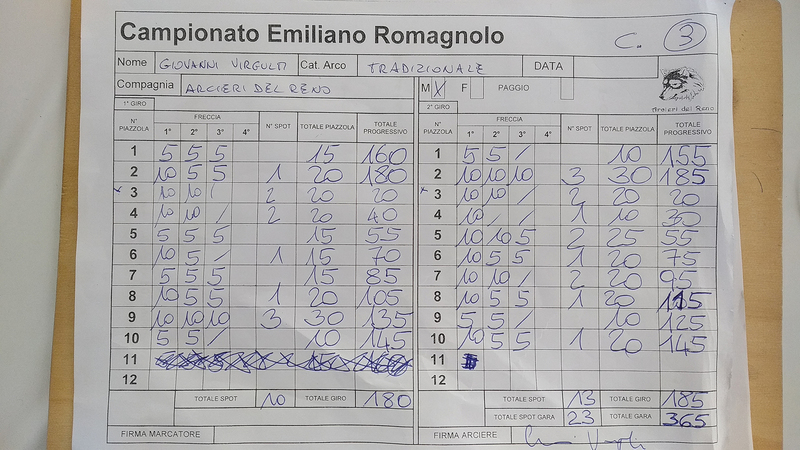 Campionato Emiliano Romagnolo
C. 3
Nome GIOVANNI VIRGULTI Cat. Arco TRADIZIONALE DATA
Compagnia ARCIERI DEL RENO M X F PAGGIO
Arcieri del Reno
1° GIRO FRECCIA 2° GIRO FRECCIA
N° PIAZZOLA 1° 2° 3° 4° N° SPOT TOTALE PIAZZOLA TOTALE PROGRESSIVO N° PIAZZOLA 1° 2° 3° 4° N° SPOT TOTALE PIAZZOLA TOTALE PROGRESSIVO
1 5 5 5 15 160 1 5 5 / 10 155
2 10 5 5 1 20 180 2 10 10 10 3 30 185
x 3 10 10 / 2 20 20 x 3 10 10 / 2 20 20
4 10 10 / 2 20 40 4 10 / / 1 10 30
5 5 5 5 15 55 5 10 10 5 2 25 55
6 10 5 / 1 15 70 6 10 5 5 1 20 75
7 5 5 5 15 85 7 10 10 / 2 20 95
8 10 5 5 1 20 105 8 10 5 5 1 20 115
9 10 10 10 3 30 135 9 5 5 / 10 125
10 5 5 / 10 145 10 10 5 5 1 20 145
11 11
12 12
TOTALE SPOT 10 TOTALE GIRO 180 TOTALE SPOT 13 TOTALE GIRO 185
TOTALE SPOT GARA 23 TOTALE GARA 365
FIRMA MARCATORE FIRMA ARCIERE